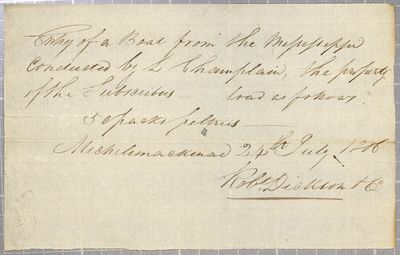 Entry of a Boat from the Mississippi
Conducted by L Champlain, the property
of the Subscribers load as follows.
5 packs peltries
Michilimackinac 24th July 1806
Robt. Dickson & Co